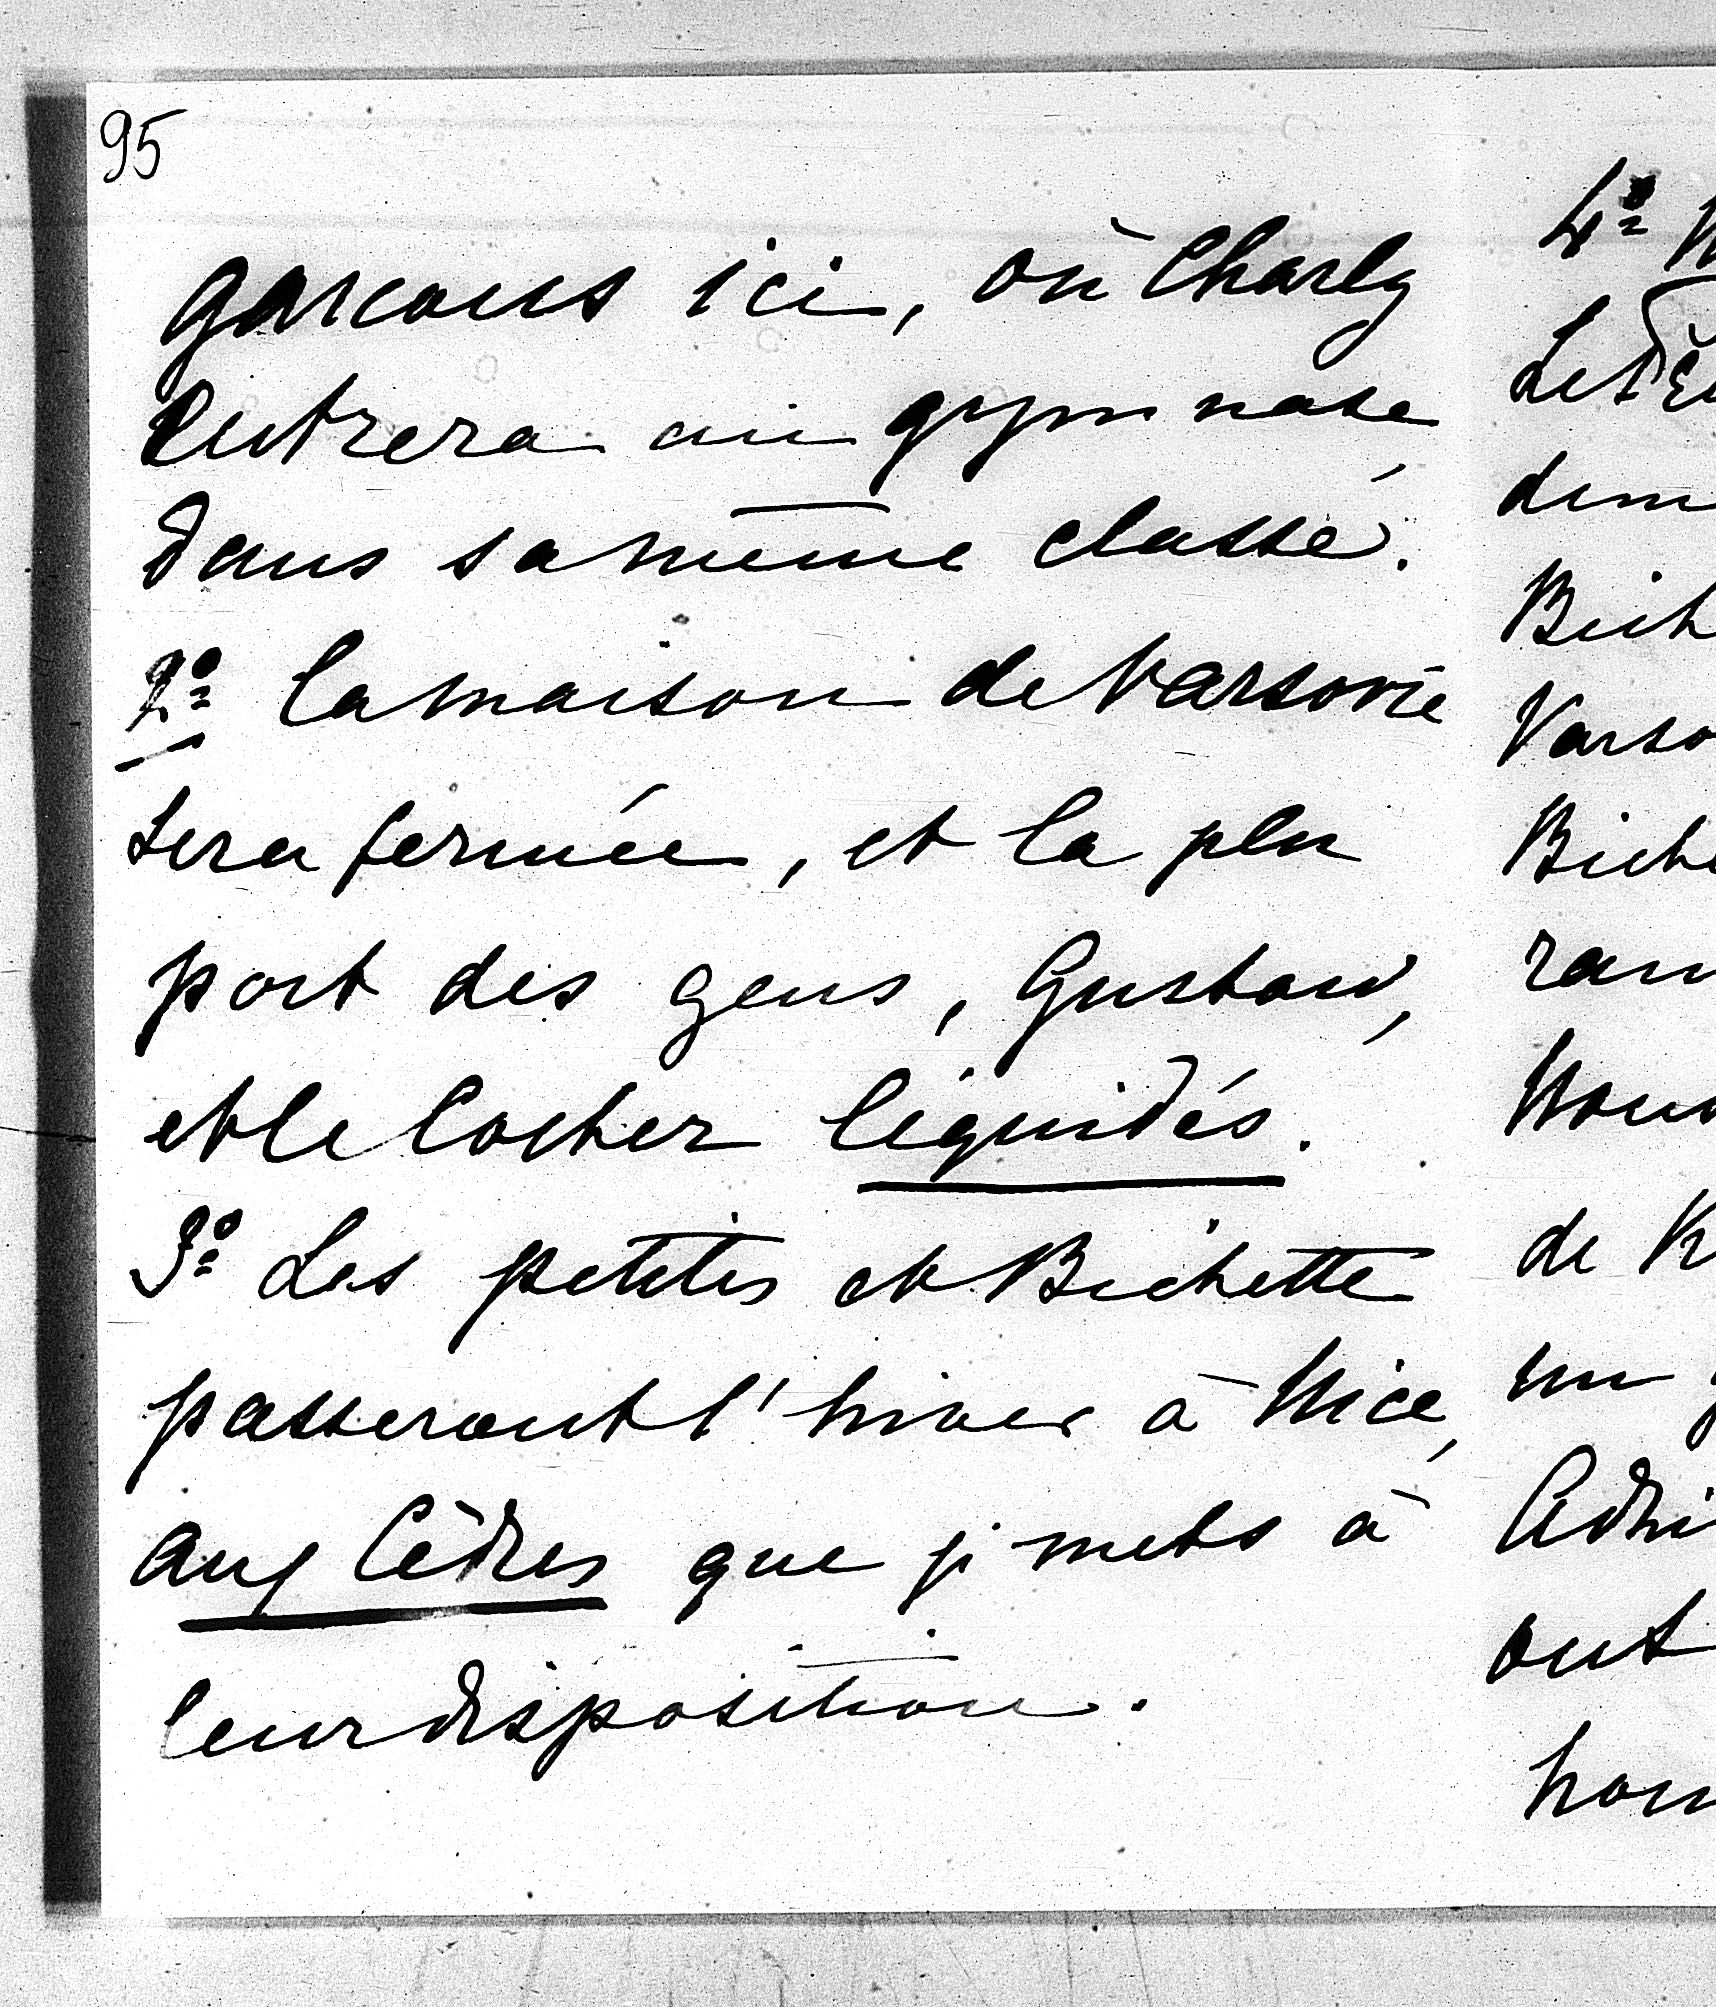 95
garcons ici, où Charly
entrera au gymnase,
dans sa même classe.
2º la maison de Varsovie
sera fermée, et la plu
part des gens, Gustaw,
et le Cocher liquidés.
3º Les petites et Bichette
passeront l'hiver à Nice,
aux Cèdres que je mets à
leur disposition.
4º
Varso
de K
ont